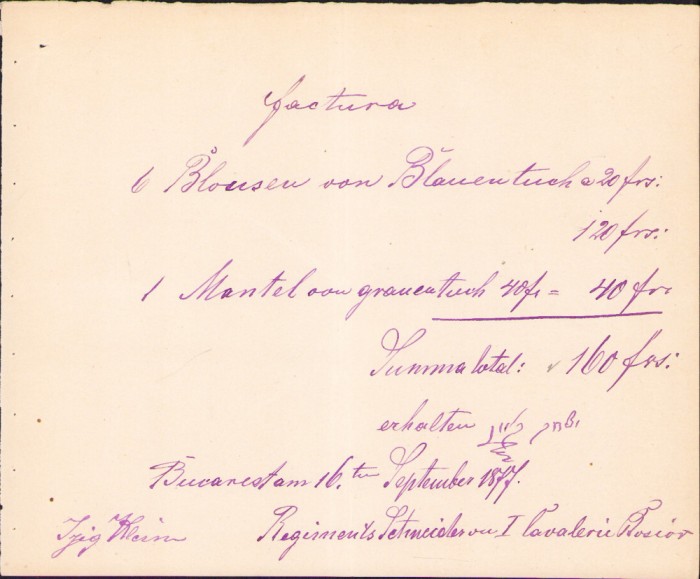 factura
6 Blousen von Blauentuch a 20 frs:
120 frs:
1 Mantel von grauentuch 40 fr = 40 frs
Summa total: 160 frs:
erhalten יצחק קליין
Bucarest am 16.ten September 1877.
Izig Klein Regiments Schneider von I Cavalerie Rosior